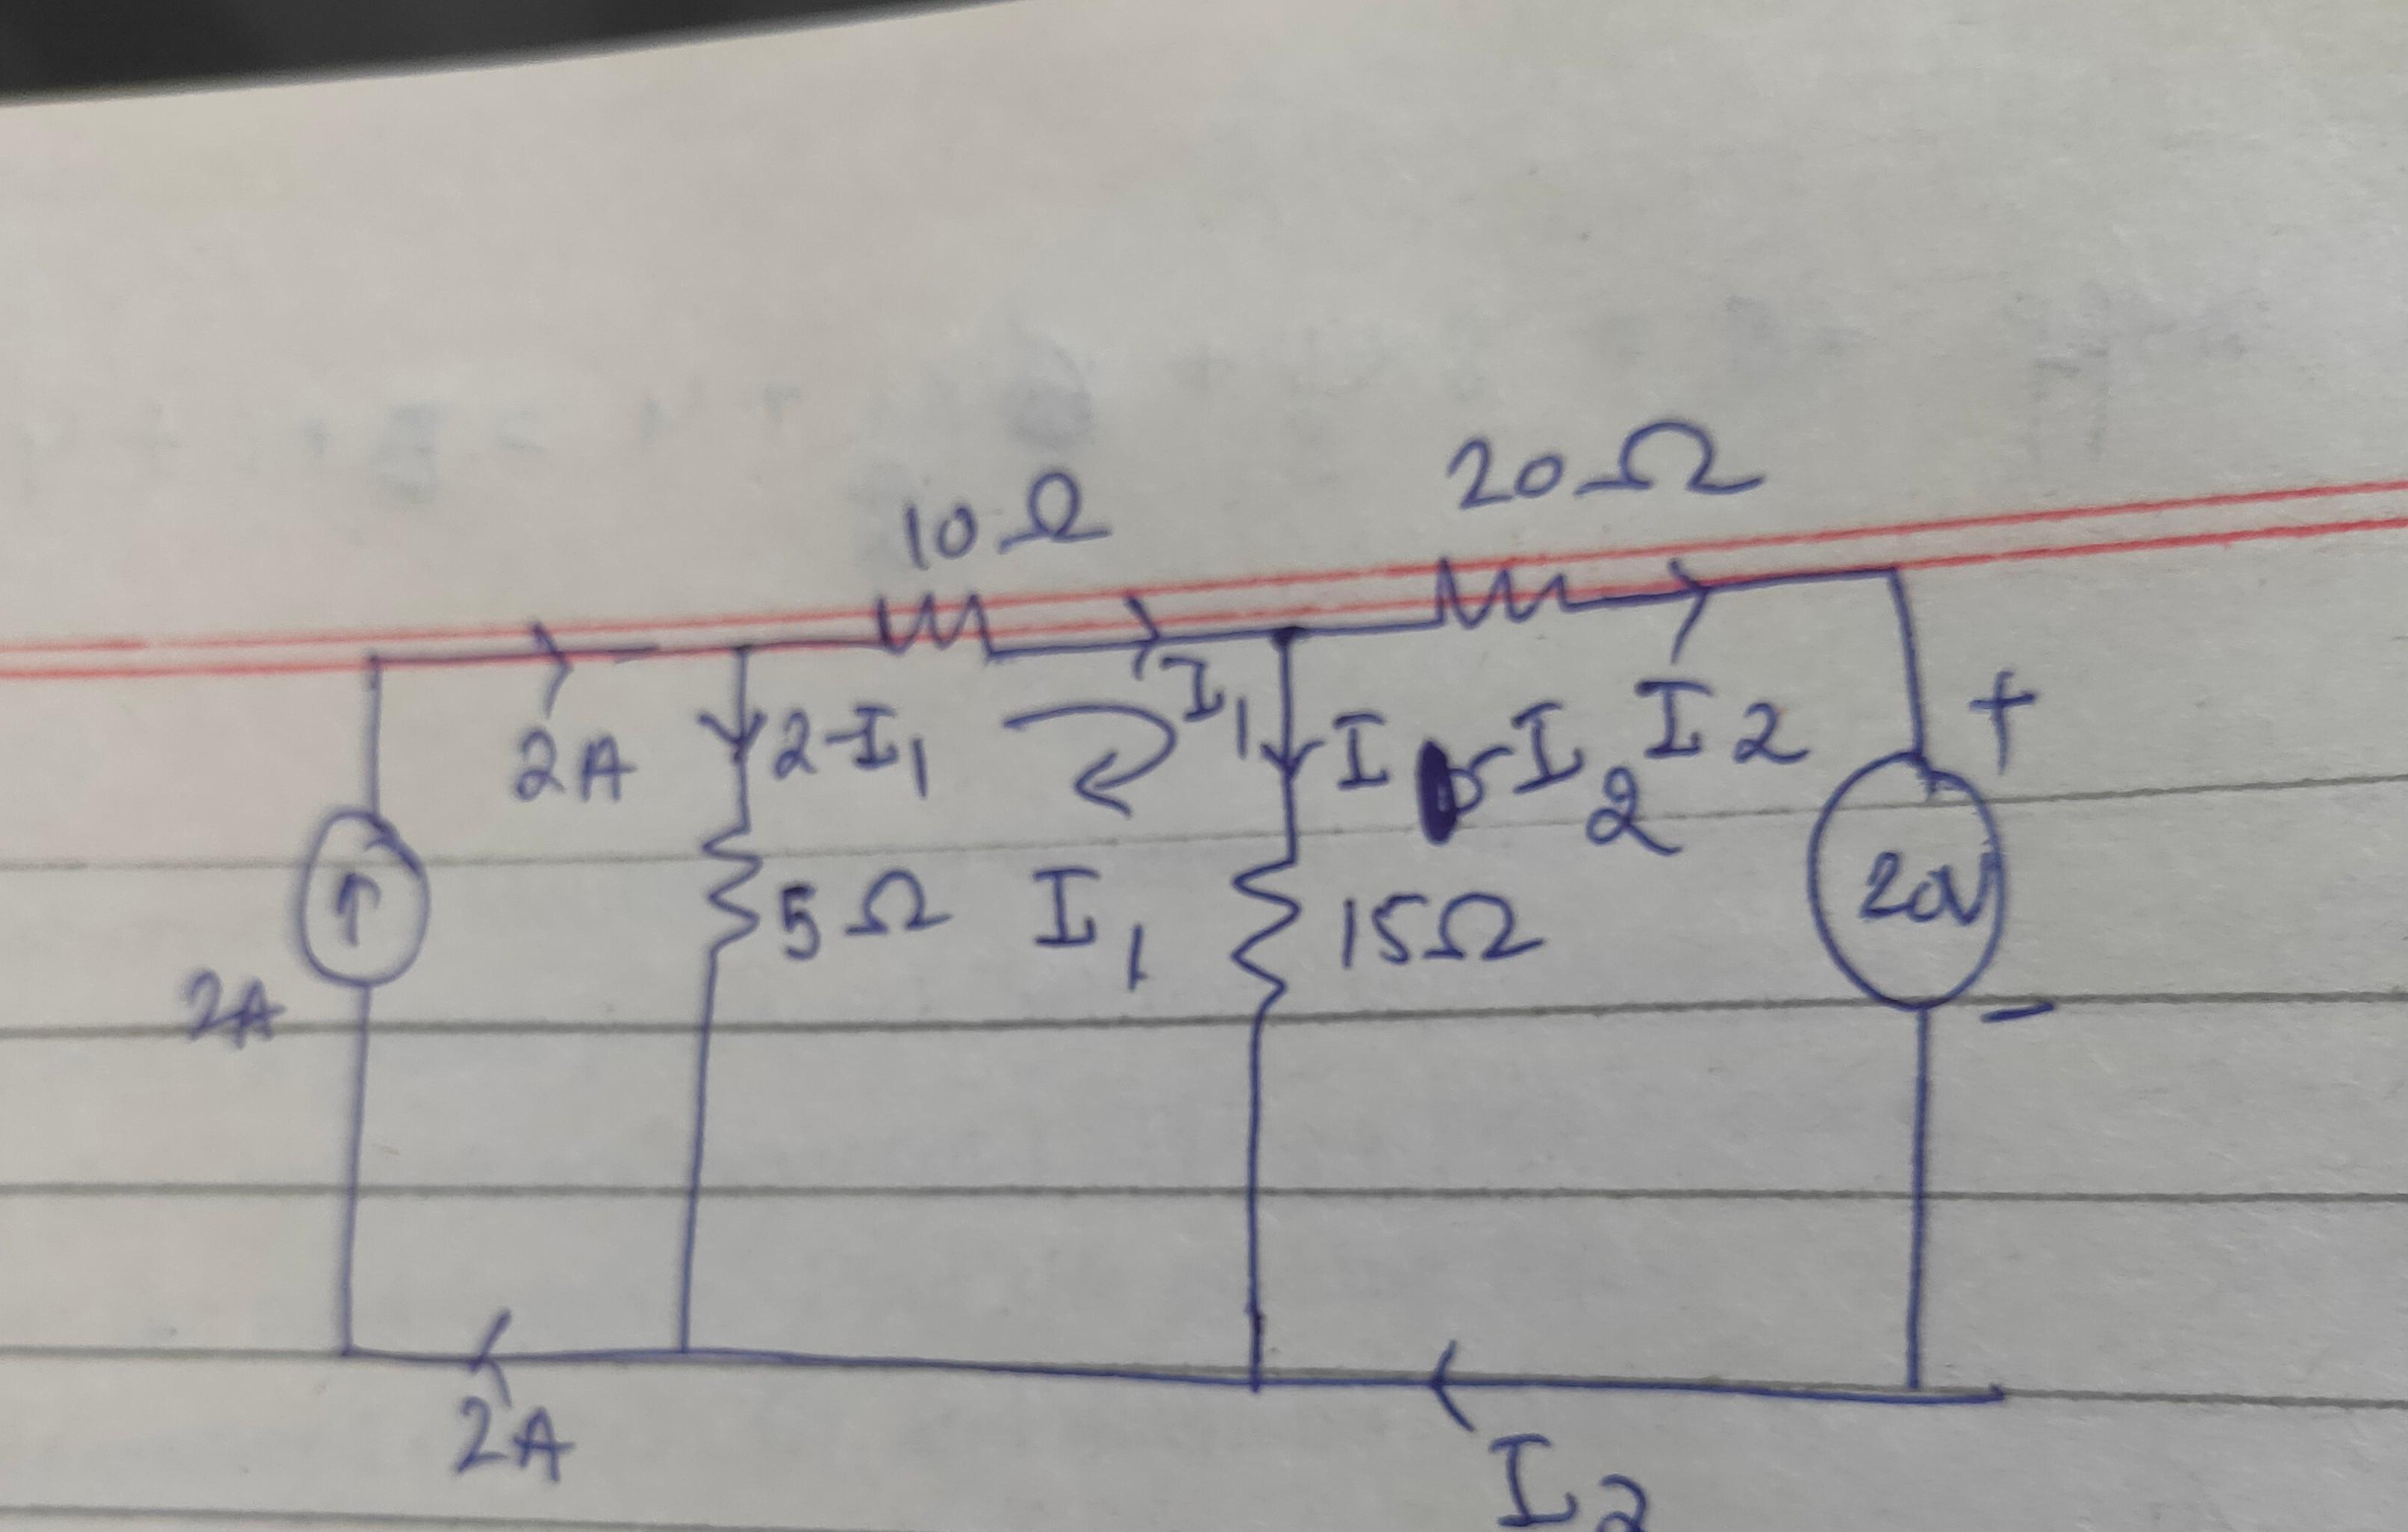 10Ω
20Ω
2A
2-I1
I1
I - I2
I2
+
5Ω
I1
15Ω
20V
2A
-
2A
I2